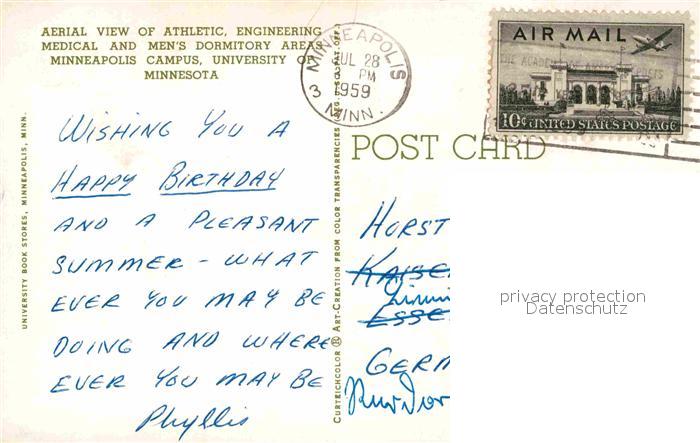 AERIAL VIEW OF ATHLETIC, ENGINEERING
MEDICAL AND MEN'S DORMITORY AREAS
MINNEAPOLIS CAMPUS, UNIVERSITY OF
MINNESOTA
MINNEAPOLIS
JUL 28
PM
1959
3 MINN.
AIR MAIL
10¢ UNITED STATES POSTAGE
POST CARD
UNIVERSITY BOOK STORES, MINNEAPOLIS, MINN.
WISHING YOU A
HAPPY BIRTHDAY
AND A PLEASANT
SUMMER - WHAT
EVER YOU MAY BE
DOING AND WHERE
EVER YOU MAY BE
Phyllis
CURTEICHCOLOR ® ART-CREATION FROM COLOR TRANSPARENCIES REG. U.S. PAT. OFF.
HORST
KAISE
ESSE
GERM
privacy protection
Datenschutz